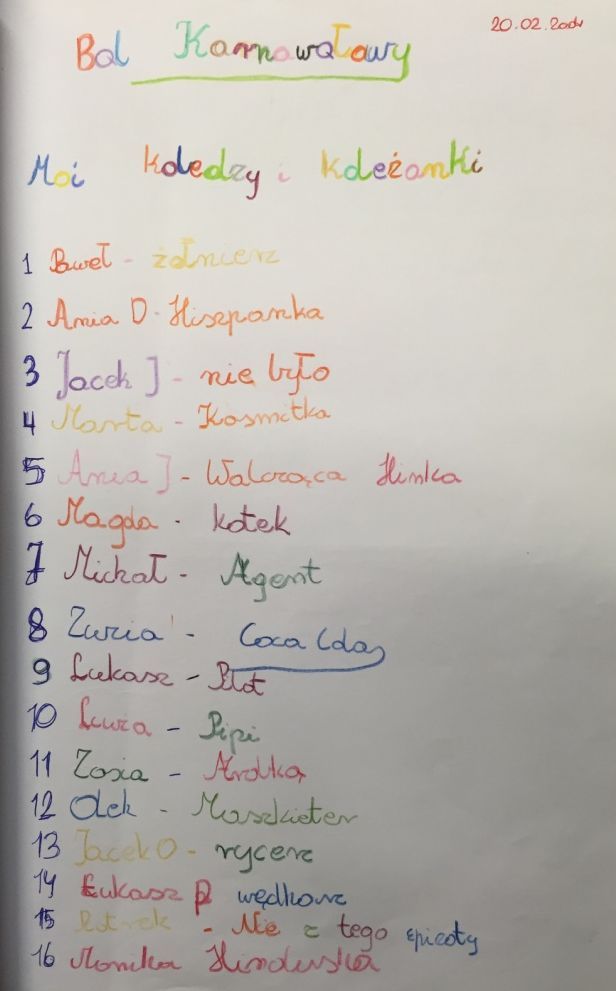 20.02.2004
Bal Karnawałowy
Moi koledzy i koleżanki
1 Paweł - żołnierz
2 Ania D - Hiszpanka
3 Jacek J - nie było
4 Marta - Kosmitka
5 Ania J - Walcząca Hinka
6 Magda - kotek
7 Michał - Agent
8 Zuzia - Coca Cola
9 Łukasz - Pilot
10 Luiza - Pipi
11 Zosia -
12 Olek - Muszkieter
13 Jacek O - rycerz
14 Łukasz P wędkarz
15 Patryk - Nie z tego epicoty
16 Monika Hinduska